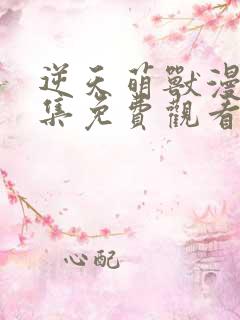 逆天萌獸漫
集免費觀看
心配